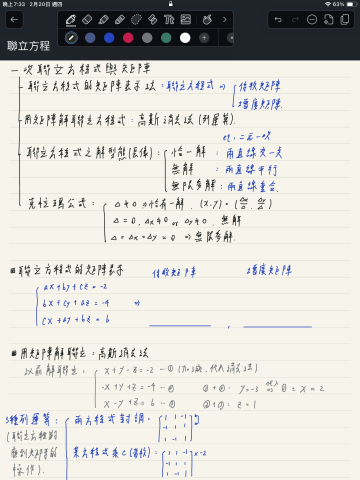 晚上7:33 2月20日 週四
63%
聯立方程
一次聯立方程式與矩陣
聯立方程式的矩陣表示法：聯立方程式 ⇒ 係數矩陣
增廣矩陣.
用矩陣解聯立方程式：高斯消去法 (列運算).
ex: 二元一次
聯立方程式之解型態(幾何)：恰一解：兩直線交一交
無解：兩直線平行
無限多解：兩直線重合.
克拉瑪公式：△≠0 ⇒ 恰有一解. (x,y) = (△x/△, △y/△)
△=0, △x≠0 or △y≠0, 無解
△=△x=△y=0 ⇒ 無限多解.
聯立方程式的矩陣表示 係數矩陣 增廣矩陣
ax+by+cz=-2
bx+cy+az=-4 ⇒
cx+ay+bz=6 ,
用矩陣解聯立：高斯消去法
以前解聯立：x+y-z=-2 —① (加減, 代入消去法)
-x+y+z=-4 —② ①+②: y=-3 ⇒ x=2
x-y+z=6 —③ ②+③: z=1
3種列運算：兩方程式對調.
(聯立方程的
應對矩陣的
操作). 某方程式乘c(常數): ×-2